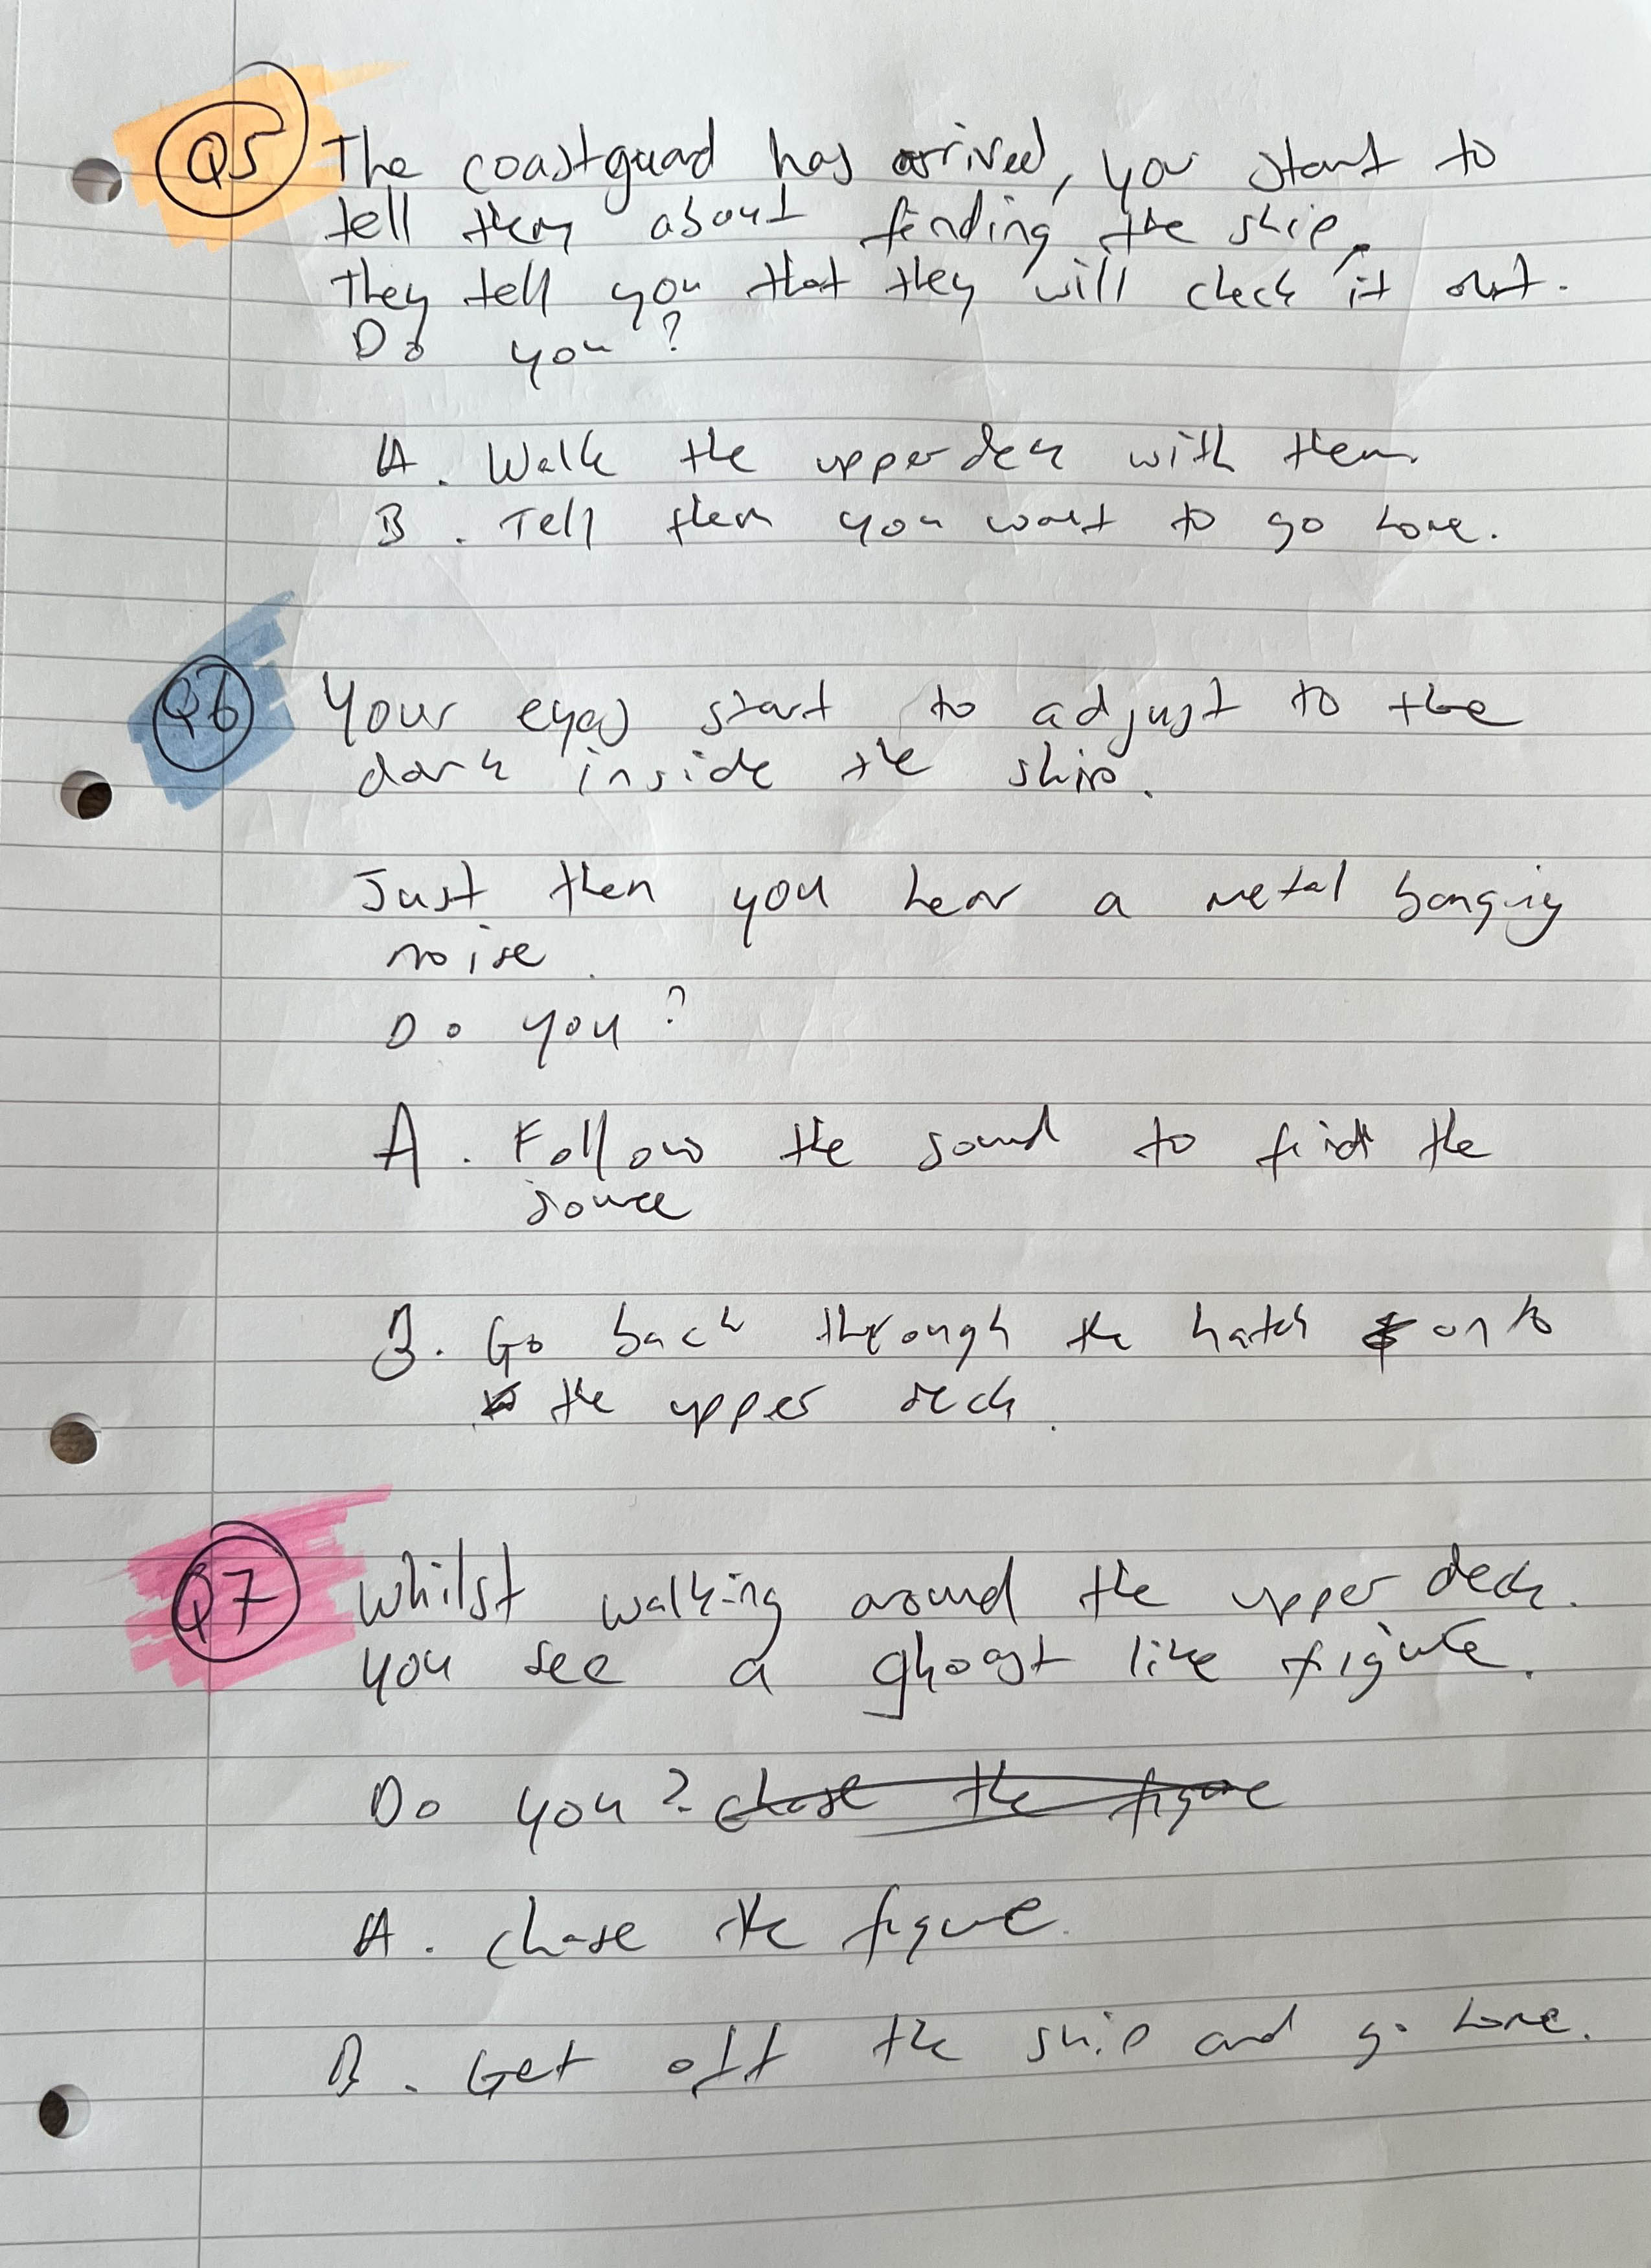 Q5 The coastguard has arrived, you start to
tell them about finding the ship,
They tell you that they will check it out.
Do you?
A. Walk the upper deck with them.
B. Tell them you want to go home.
Q6 Your eyes start to adjust to the
dark inside the ship.
Just then you hear a metal banging
noise.
Do you?
A. Follow the sound to find the
source
B. Go back through the hatch onto
the upper deck.
Q7 Whilst walking around the upper deck.
you see a ghoast like figure.
Do you? chase the figure
A. chase the figure.
B. Get off the ship and go home.